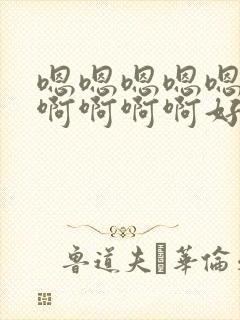 嗯嗯嗯嗯嗯
啊啊啊啊好
魯道夫 華倫